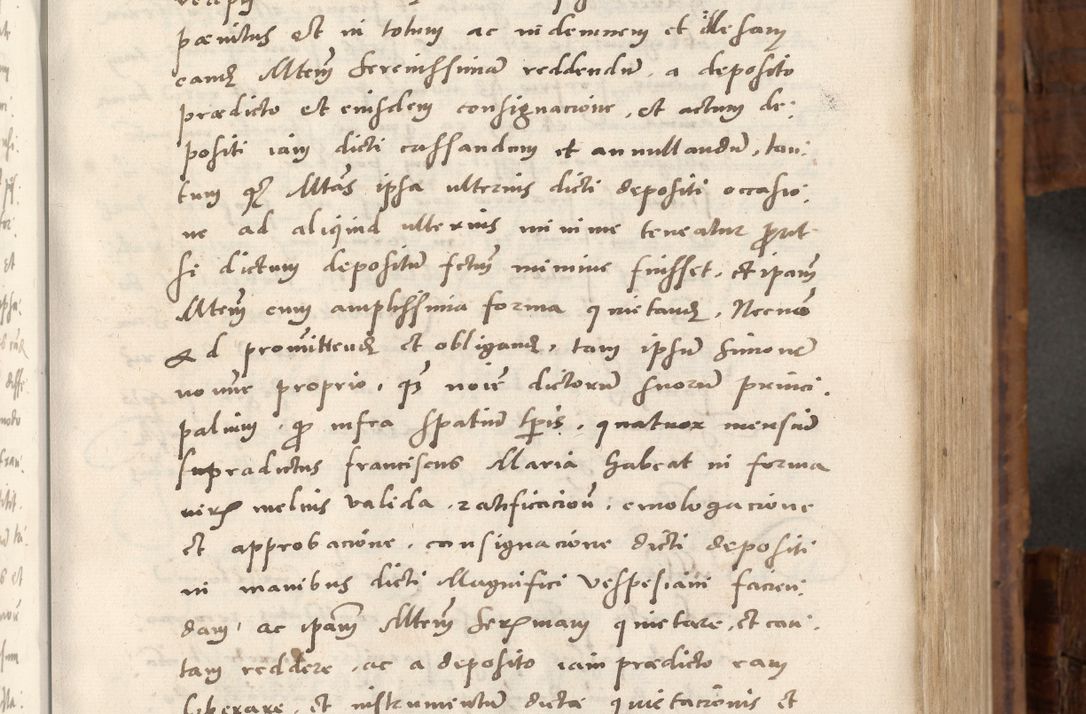 pœnitus et in totum ac indemnem et illesam
eandꝫ Mtem̃ Serenissimam reddendũ, a deposito
prædicto et eiusdem consignacione, et actum de:
positi iam dicti cassandum et annullandũ, tan:
tum qꝫ Mtas̃ ipsa ulterius dicti depositi occasio:
ne ad aliquid ulterius minime teneatur ꝓut
si dictum depositũ fctum̃ minime fuisset, et ipam̃
Mtem̃ cum amplissima forma quietandꝫ, Necnõ
Ad promittendꝫ et obligandꝫ, tam ipsũ Simonẽ
nomine proprio, qꝫ noie͂ dictorũ suorũ princi:
palium, ꝙ infra spatiũ tpis̃, quatuor mensiũ
supradictus Franciscus Maria habeat in forma
melius valida, ratificacionẽ, emologacione
et approbacione, consignacione dicti depositi
in manibus dicti Magnifici Vespesiani facien:
dam, ac ipam̃ Mtem̃ quietare, et cau:
tam reddere, ac a deposito iam prædicto eam
liberare, et instrumentũ dictæ quietacionis et